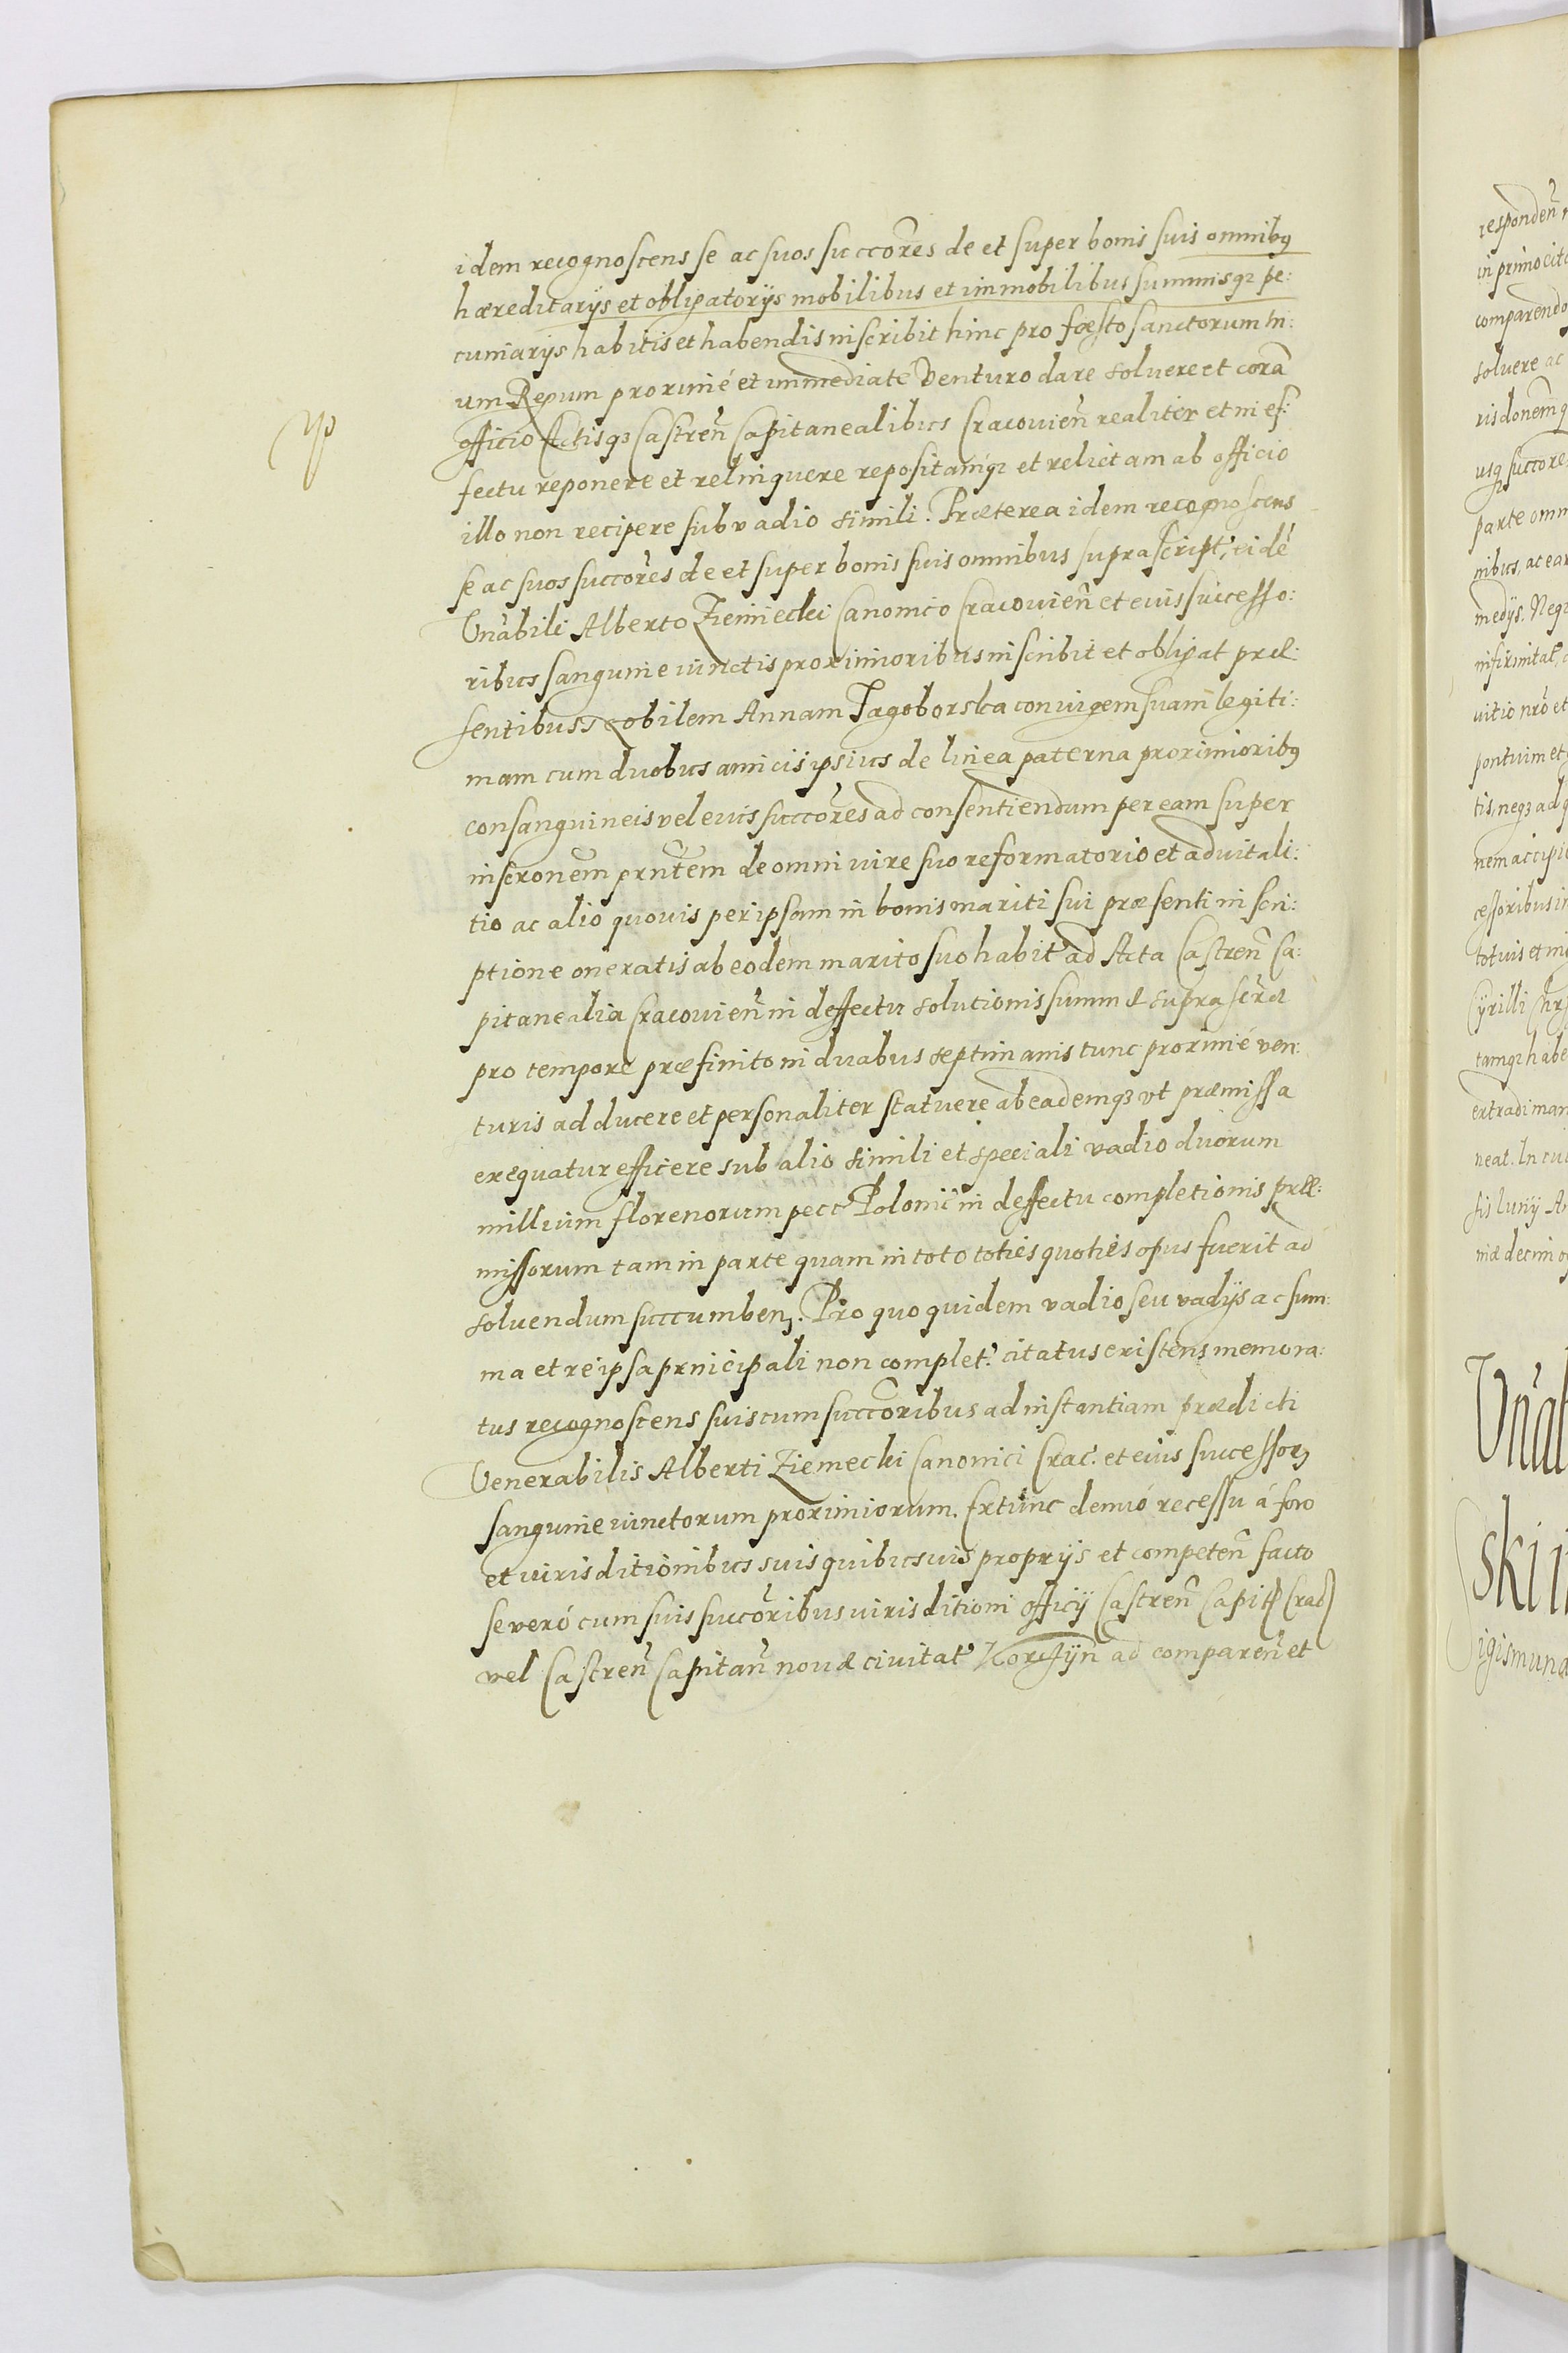 idem recognoscens se ac suos succcõres de et super bonis suis omnibq
hæreditarijs et obligatorijs mobilibus et immobilibus summisqz pe:
cuniarijs habitis et habendis inscribit hinc pro fæsto sanctorum tri:
um Regum proximé et immediate Venturo dare soluere et corã
officio Actisqz Castreñ Capitanealibus Cracouieñ realiter et in ef:
fectu reponere et relinquere repositamqz et relictam ab officio
illo non recipere sub vadio simili. Præterea idem recognoscens
se ac suos succõres de et super bonis suis omnibus suprascript, eidé
Vnãbili Alberto Ziemiecki Canonico Cracouieñ et eius successo:
ribus sanguine iunctis proximioribus inscribit et obligat præ:
sentibus Nobilem Annam Jagoborska coniugem suam legiti:
mam cum duobus amicis ipsius de linea paterna proximioribq
consanguineis vel eius succcõres ad consentiendum per eam super
inscronem prntem de omni iure suo reformatorio et aduitali:
tio ac alio quouis per ipsam in bonis mariti sui præsenti inscri:
ptione oneratis ab eodem marito suo habit ad Acta Castreñ Ca:
pitanealia Cracouieñ in deffectu solutionis summæ suprascræ
pro tempore præfinito in duabus septimanis tunc proximé ven:
turis adducere et personaliter statuere ab eademqz vt præmissa
exequatur efficere sub alio simili et speciali vadio duorum
millium florenorum pecc Polonic in deffectu completionis præ:
missorum tam in parte quam in toto toties quoties opus fuerit ad
soluendum succumbenz. Pro quo quidem vadio seu vadijs ac sum:
ma et re ipsa principali non complet: citatus existens memora:
tus recognoscens suis cum succcõribus ad instantiam prædicti
Venerabilis Alberti Ziemecki Canonici Crac. et eius successorz
sanguine iunctorum proximiorum. Extunc demió recessu á foro
et iurisditionibus suis quibusuis proprijs et competeñ facto
se veró cum suis succõribus iurisditioni officij Castreñ Capit Crac
vel Castreñ Capitañ nouæ ciuitat Korcijñ ad compareñ et
respondeñ
in primo cit
comparendo
soluere ac
ris donemq
usqz succore
parte omn
nibus, ac ear
medijs. Neqz
infirmitat,
uitio nrõ et
pontuim et
tis, neqz ad q
nem accipie
cessoribus in
totuis et in
Cyrilli Chr
tamqz habe
extradi man
neat. In cui
sis Iunij A
mæ decim o
Vñab
ski i
igismund